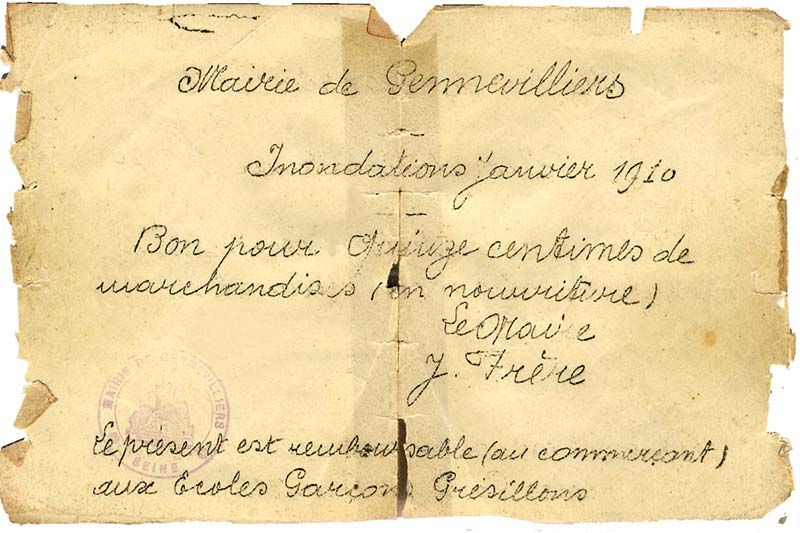 Mairie de Gennevilliers
Inondations janvier 1910
Bon pour Quinze centimes de
marchandises (en nourriture)
Le Maire
J. Frère
MAIRIE DE GENNEVILLIERS
SEINE
Le présent est remboursable (au commerçant)
aux Ecoles Garçons Grésillons